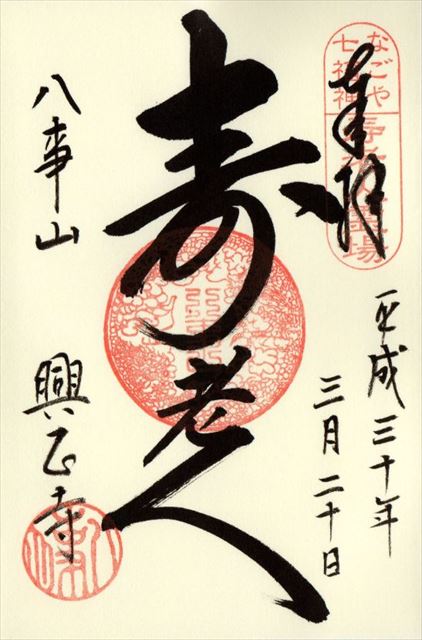 奉拝
なごや
七福神
平成三十年
三月二十日
寿老人
八事山
興正寺